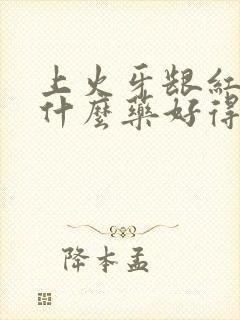 上火牙龈紅
什麼藥好得
降本孟